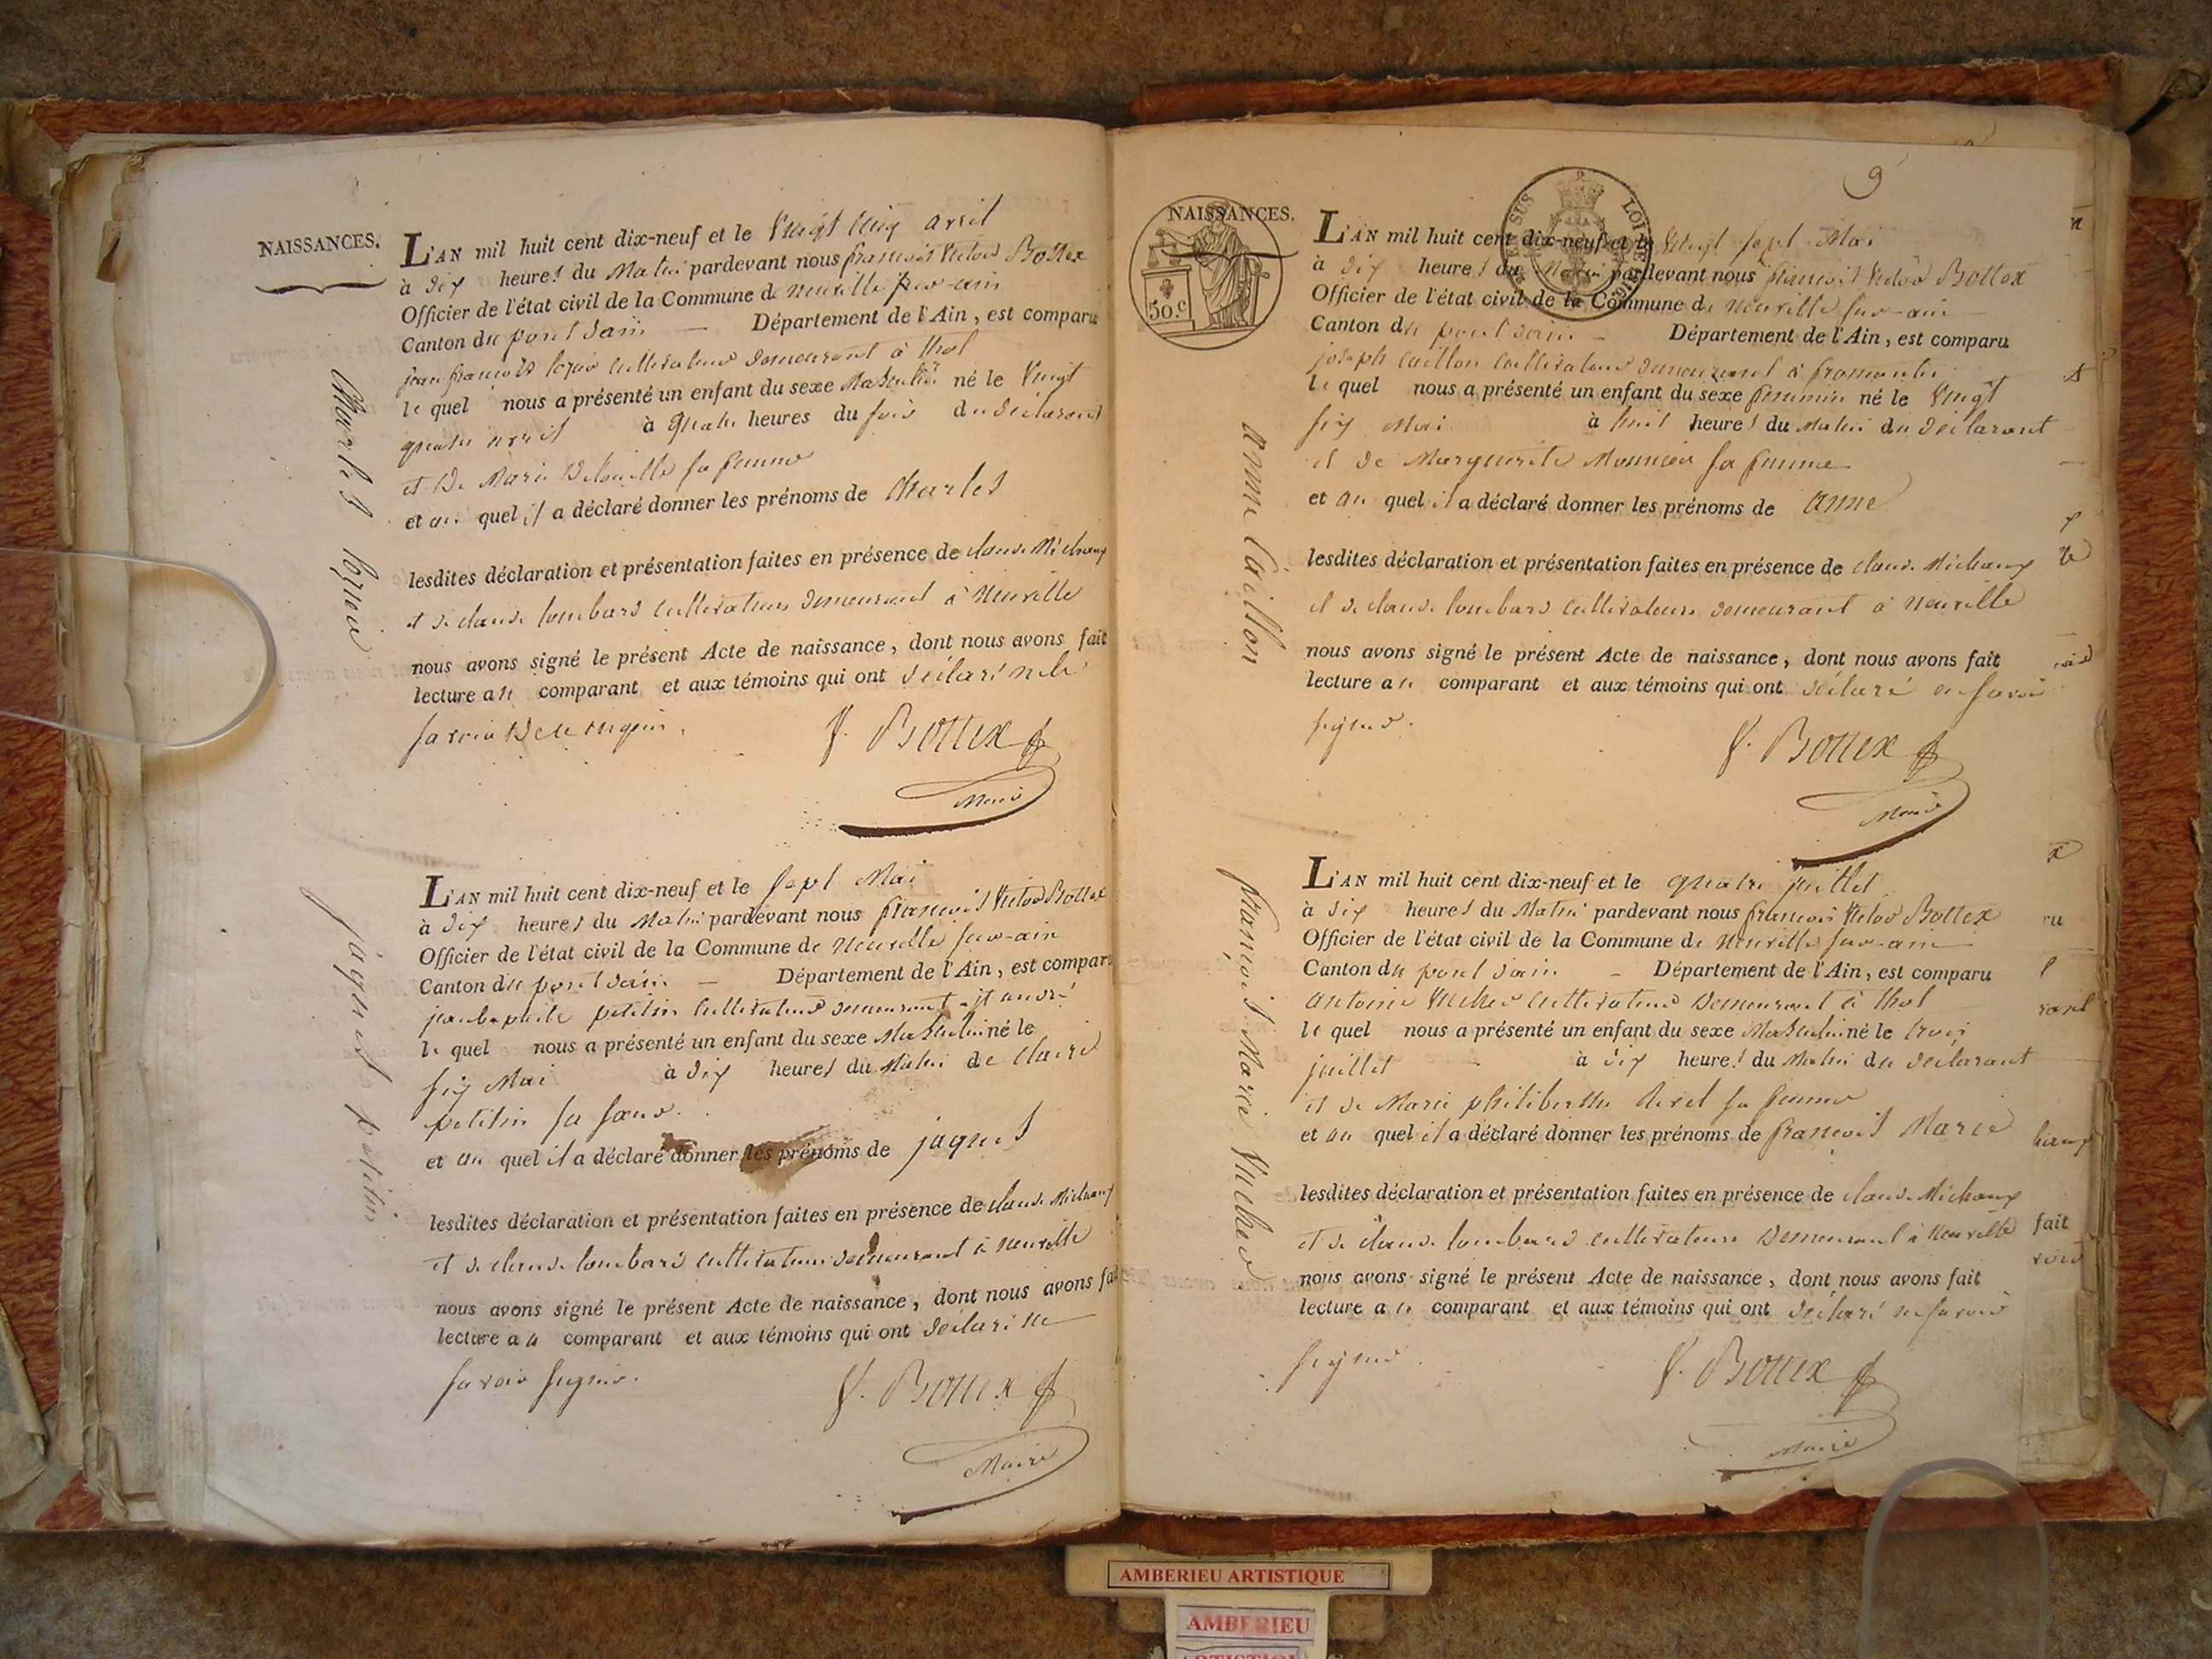 NAISSANCES.
L'AN mil huit cent dix-neuf et le Vingt cinq avril
à dix heures du Matin pardevant nous françois Victor Bottex
Officier de l'état civil de la Commune de neuville sur-ain
Canton du pont dain — Département de l'Ain, est comparu
jean françois cultivateur demeurant à thol
le quel nous a présenté un enfant du sexe Masculin né le Vingt
quatre avril à quatre heures du soir du déclarant
et De Marie sa femme
et au quel il a déclaré donner les prénoms de Charles
lesdites déclaration et présentation faites en présence de claude Michaux
et de claude lombard cultivateurs demeurant à Neuville
nous avons signé le présent Acte de naissance, dont nous avons fait
lecture au comparant et aux témoins qui ont déclaré ne le
savoir De ce requis.
V. Bottex
Maire
Charles
L'AN mil huit cent dix-neuf et le sept Mai
à dix heures du Matin pardevant nous françois Victor Bottex
Officier de l'état civil de la Commune de neuville sur-ain
Canton du pont dain — Département de l'Ain, est comparu
jean baptiste petitin cultivateur demeurant à st andré
le quel nous a présenté un enfant du sexe Masculin né le
six Mai à dix heures du Matin de claire
petitin sa sœur.
et au quel il a déclaré donner les prénoms de jaques
lesdites déclaration et présentation faites en présence de claude Michaux
et de claude lombard cultivateurs demeurant à neuville
nous avons signé le présent Acte de naissance, dont nous avons fait
lecture au comparant et aux témoins qui ont déclaré ne
savoir signer.
V. Bottex
Maire
jaques petitin
9
NAISSANCES.
50.c
L'AN mil huit cent dix-neuf et le Vingt sept Mai
à dix heures du Matin pardevant nous françois Victor Bottex
Officier de l'état civil de la Commune de neuville sur-ain
Canton du pont dain — Département de l'Ain, est comparu
joseph caillon cultivateur demeurant à fromente
le quel nous a présenté un enfant du sexe feminin né le Vingt
six Mai à huit heures du Matin du déclarant
et de Marguerite sa femme
et au quel il a déclaré donner les prénoms de anne
lesdites déclaration et présentation faites en présence de claude Michaux
et de claude lombard cultivateurs demeurant à neuville
nous avons signé le présent Acte de naissance, dont nous avons fait
lecture au comparant et aux témoins qui ont déclaré ne savoir
signer.
V. Bottex
Maire
anne Caillon
L'AN mil huit cent dix-neuf et le quatre juillet
à dix heures du Matin pardevant nous françois Victor Bottex
Officier de l'état civil de la Commune de neuville sur-ain
Canton du pont dain — Département de l'Ain, est comparu
antoine Vucher cultivateur demeurant à thol
le quel nous a présenté un enfant du sexe Masculin né le trois
juillet à dix heures du Matin du déclarant
et de Marie philiberthe sa femme
et au quel il a déclaré donner les prénoms de françois Marie
lesdites déclaration et présentation faites en présence de claude Michaux
et de claude lombard cultivateurs demeurant à neuville
nous avons signé le présent Acte de naissance, dont nous avons fait
lecture au comparant et aux témoins qui ont déclaré ne savoir
signer.
V. Bottex
Maire
françois Marie Vucher
fait
AMBERIEU ARTISTIQUE
AMBERIEU